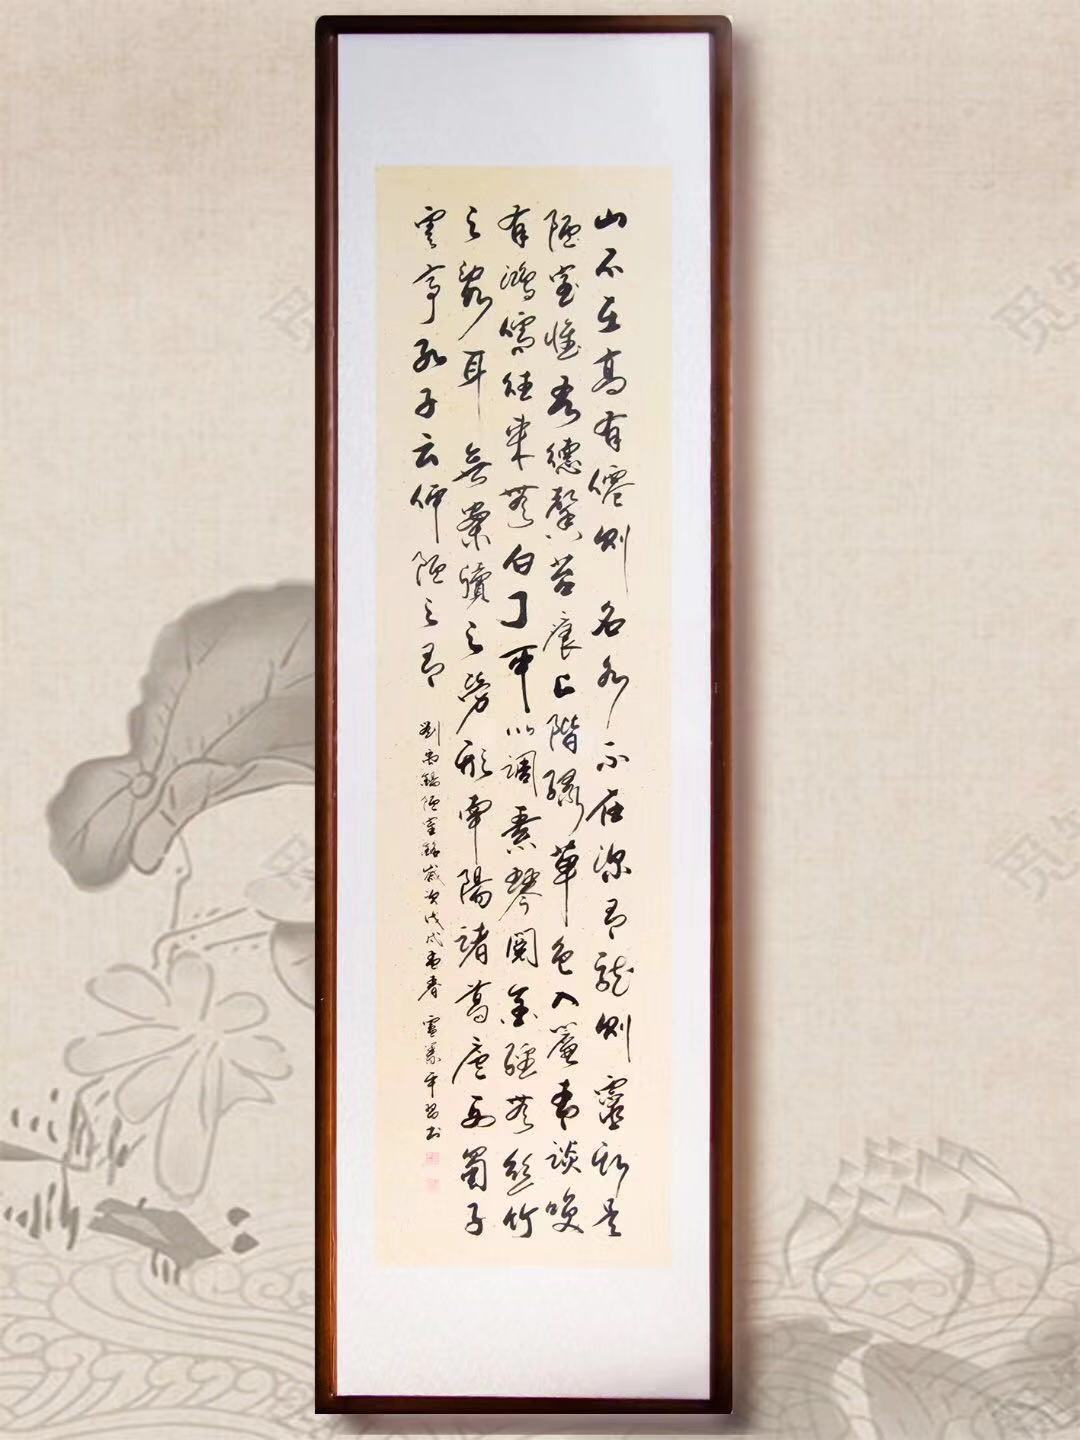 山不在高有僊則名水不在深有龍則靈斯是
陋室惟吾德馨苔痕上階綠草色入簾青談咲
有鴻儒往來無白丁可以調素琴閱金經無絲竹
之亂耳無案牘之勞形南陽諸葛廬西蜀子
雲亭孔子云何陋之有
劉禹錫陋室銘歲次戊戌孟春